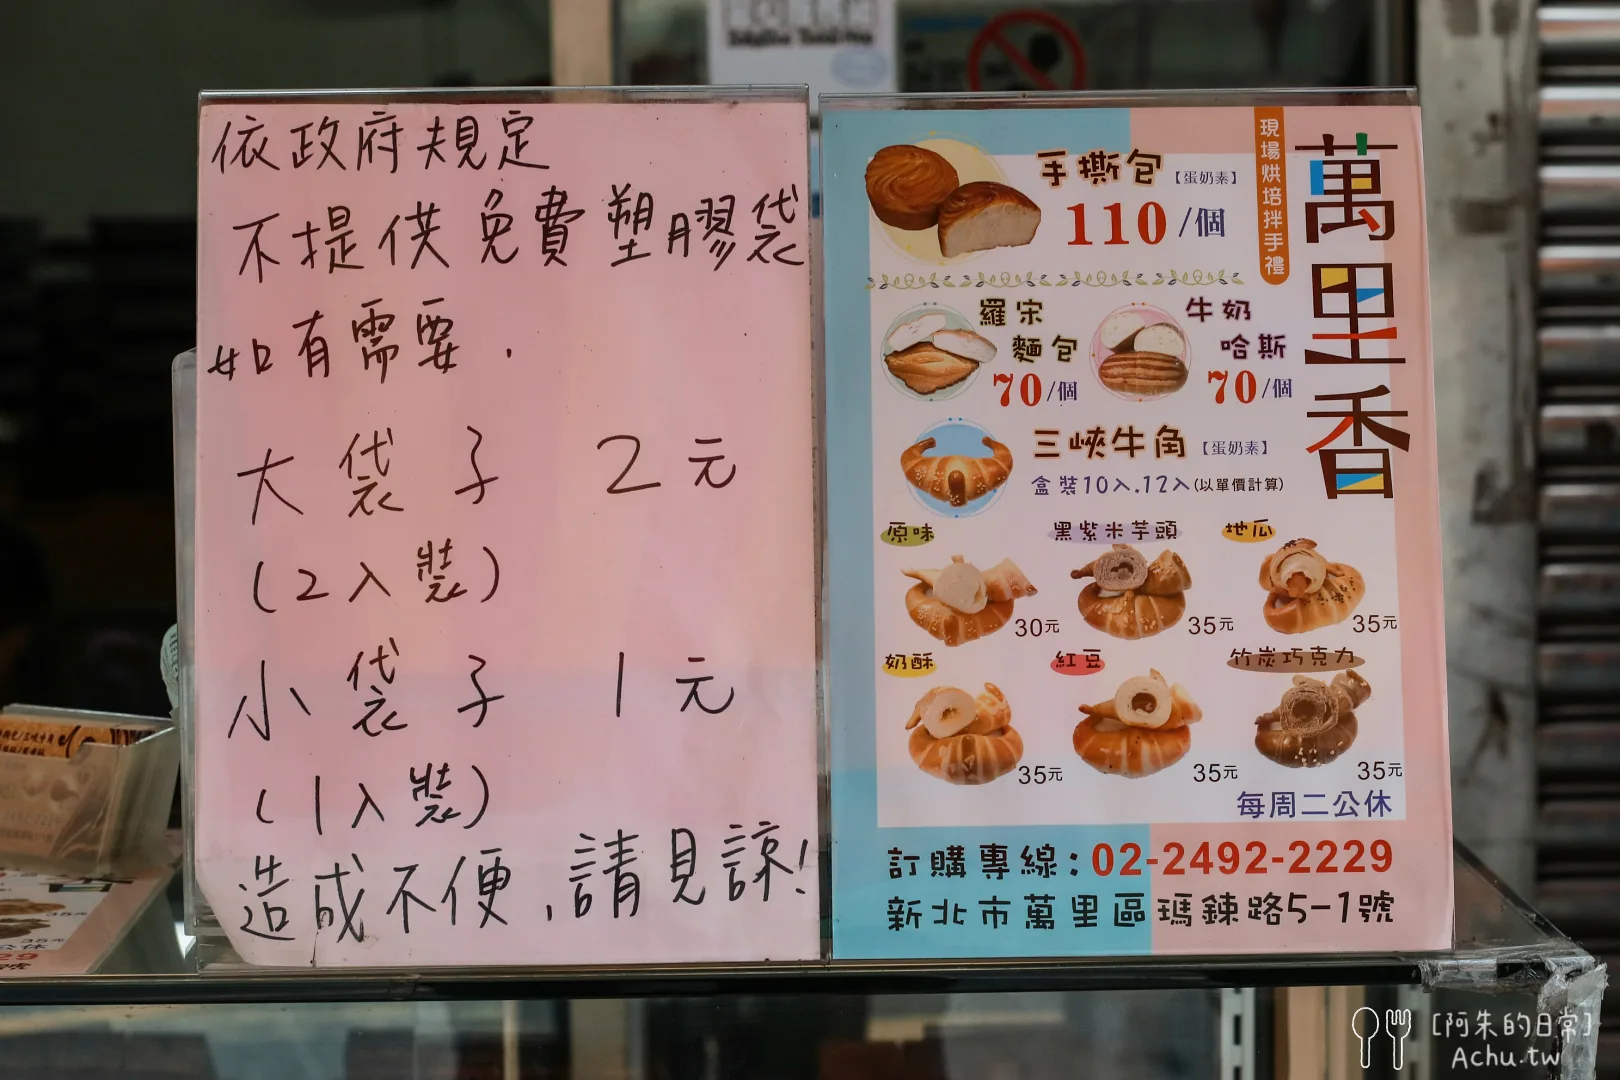 依政府規定
不提供免費塑膠袋
如有需要,
大袋子 2元
(2入裝)
小袋子 1元
(1入裝)
造成不便,請見諒!
萬里香
現場烘培拌手禮
手撕包【蛋奶素】
110/個
羅宋
麵包
70/個
牛奶
哈斯
70/個
三峽牛角【蛋奶素】
盒裝10入.12入(以單價計算)
原味
30元
黑紫米芋頭
35元
地瓜
35元
奶酥
35元
紅豆
35元
竹炭巧克力
35元
每周二公休
訂購專線:02-2492-2229
新北市萬里區瑪鋉路5-1號
[阿朱的日常]
Achu.tw